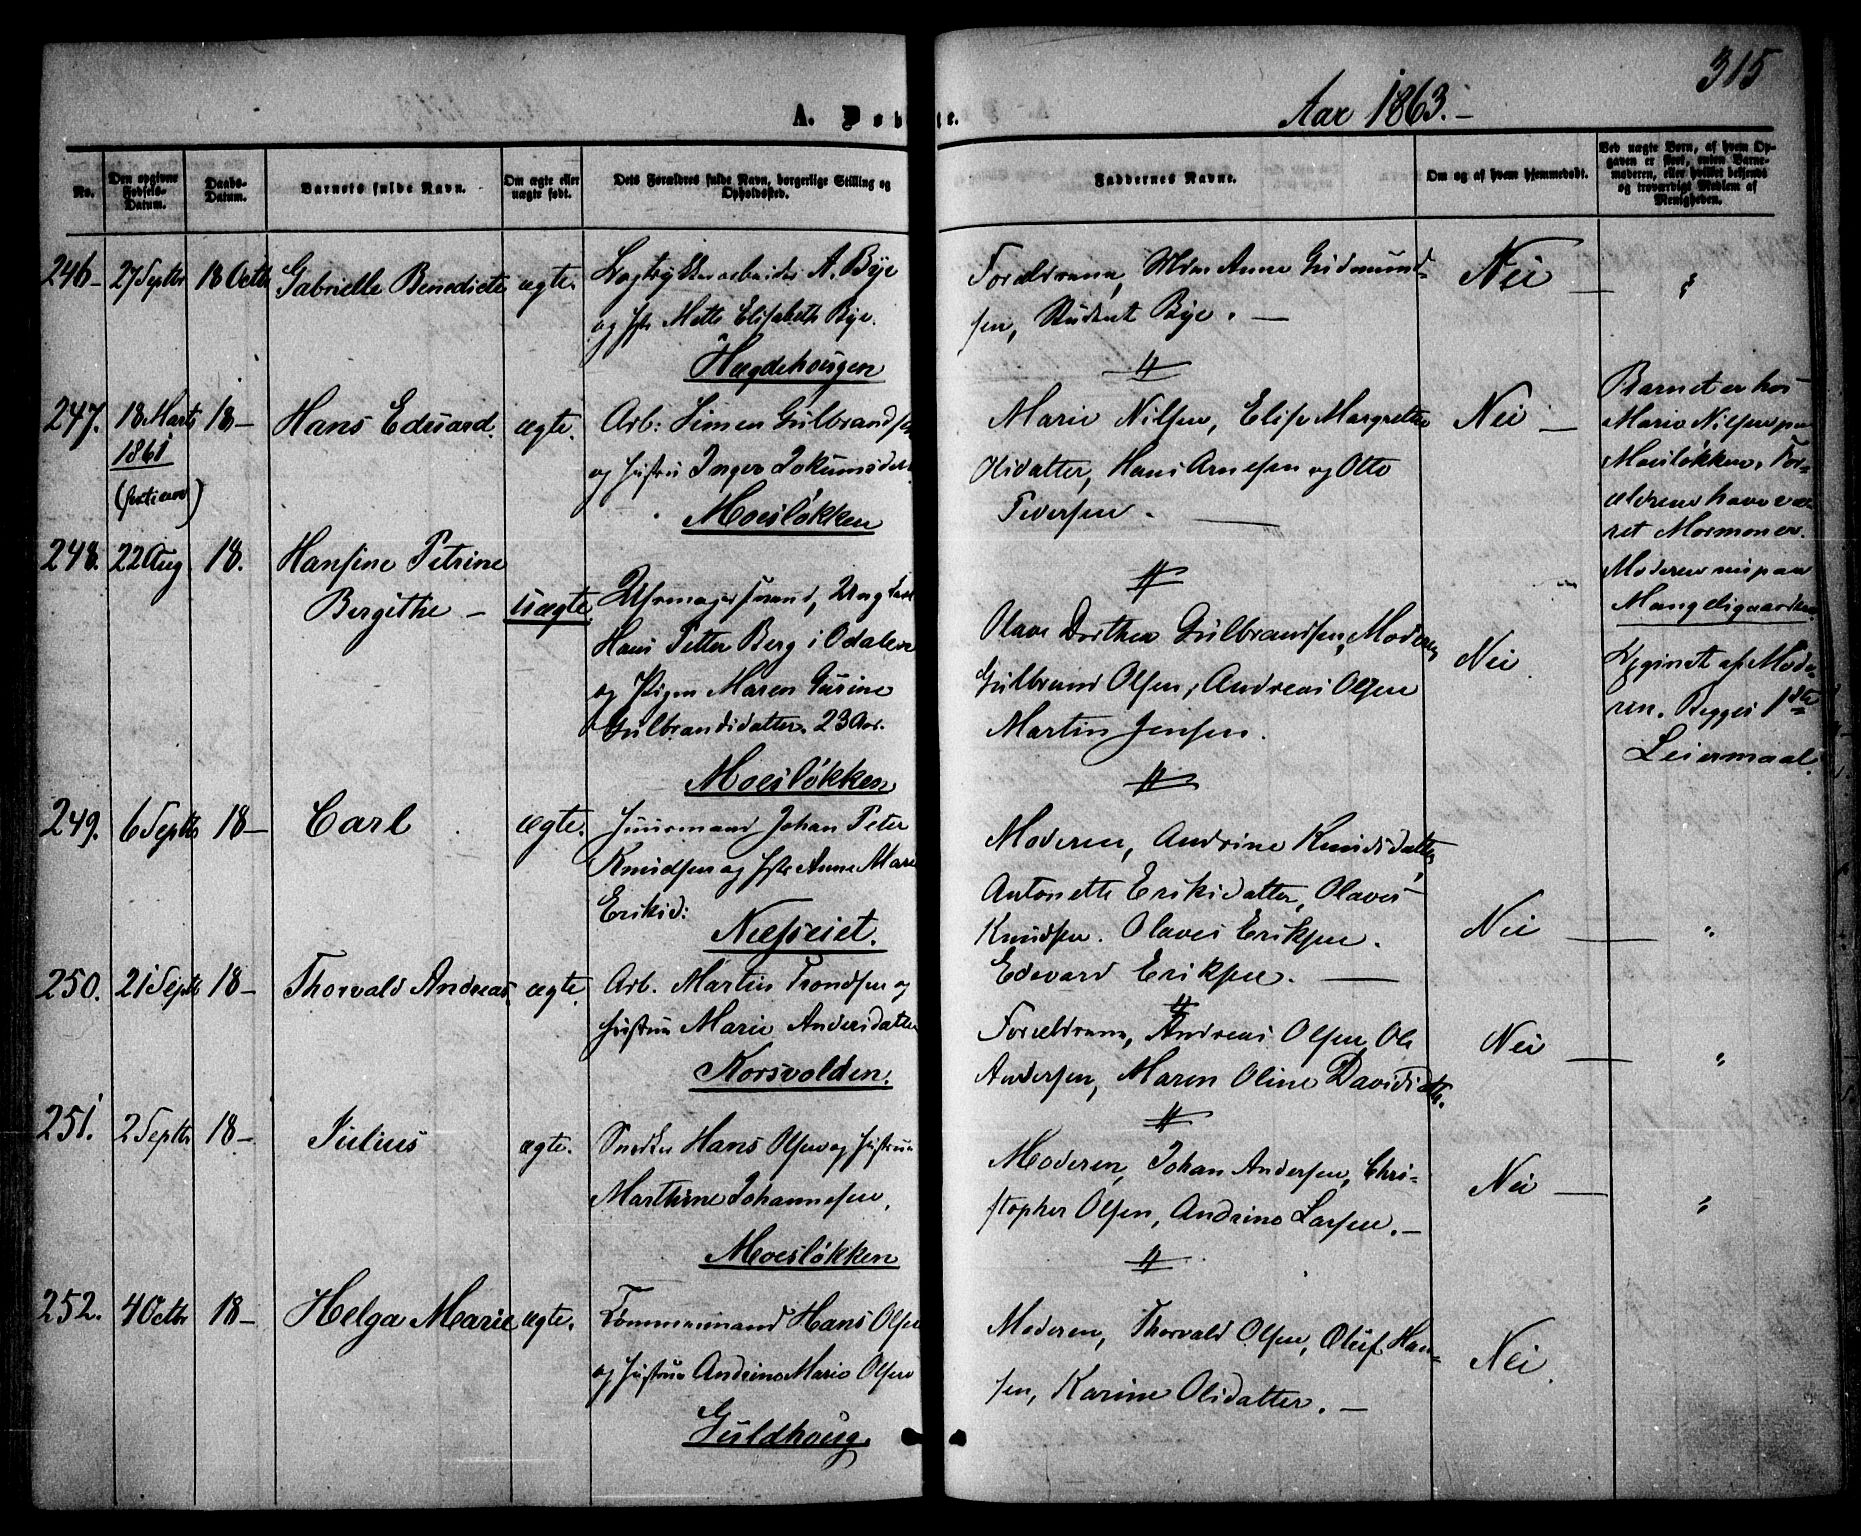 315
A. Døbte.
Aar 1863.-
No.
Den opgivne Fødsels-Datum.
Daabs-Datum.
Barnets fulde Navn.
Om ægte eller uægte født.
Dets Forældres fulde Navn, borgerlige Stilling og Opholdssted.
Faddernes Navne.
Om og af hvem hjemmedøbt.
Ved uægte Børn, af hvem Opgaven er skeet, enten Barnemoderen, eller hvilket bekjendt og troværdigt Medlem af Menigheden.
246- 27 Septbr 18 Octbr Gabrielle Benedicte ægte. A. Bye
og Hst. Mette Elisabeth Bye.
Hægdehougen
Forældrene, Anne Gudmund-
sen, Student Bye. -
Nei - "
247. 18 Marts 18- Hans Eduard. ægte. Arb: Simen Gulbrandsen
1861
og Hustru Inger
Moesløkken
Marie Nilsen, Elise Margrethe
Olsdatter, Hans Arnesen og Otto
Nei -
Barnet er hos
Marie Nilsen paa
Moesløkken. For-
ældrene have væ-
ret Mormoner.
Moderen nu paa
248. 22 Aug. 18. Hansine Petrine
Bergithe - uægte Ungkarl
Hans Petter Berg i Odalen
og Pigen Maren Gurine
Gulbrandsdatter. 23 Aar.
Moesløkken
Olave Dorthea Gulbrandsen, Moderen,
Gulbrand Olsen, Andreas Olsen
Martin Jensen.
Nei.
Opgivet af Mode-
ren. Begges 1ste
Leiermaal.
249. 6 Septbr 18- Carl ægte. Huusmand Johan Peter
Knudsen og Hst. Anne Marie
Eriksd:
Næsseiet.
Moderen, Andrine Knudsdatter,
Antonette Eriksdatter, Olaves
Knudsen. Olaves Eriksen.
Edevard Eriksen. -
Nei - "
250. 21 Septbr 18- Thorvald Andreas ægte. Arb. Martin Trondsen og
Hustru Marie Andersdatter
Korsvolden.
Forældrene, Andreas Olsen, Ole
Andersen, Maren Oline Davidsdtr.
Nei - "
251. 2 Septbr 18- Julius ægte. Snedker Hans Olsen og Hustru
Marthine Johannesen.
Moesløkken
Moderen, Johan Andersen, Chri-
stopher Olsen, Andrine Larsen. -
Nei - "
252. 4 Octbr 18- Helga Marie ægte. Tømmermand Hans Olsen
og Hustru Andrine Marie Olsen
Guldhoug.
Moderen, Thorvald Olsen, Oluf Han-
sen, Karine Olsdatter. -
Nei.